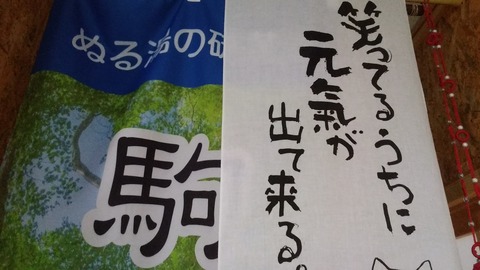 笑ってるうちに
元氣が
出て来る。
ぬる湯の
駒